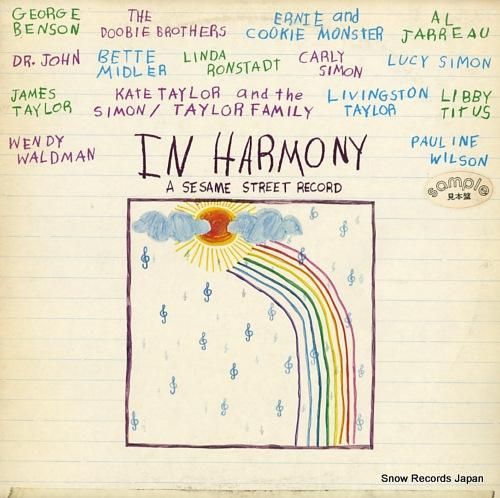 GEORGE BENSON
THE DOOBIE BROTHERS
ERNIE and COOKIE MONSTER
AL JARREAU
DR. JOHN
BETTE MIDLER
LINDA RONSTADT
CARLY SIMON
LUCY SIMON
JAMES TAYLOR
KATE TAYLOR and the SIMON/TAYLOR FAMILY
LIVINGSTON TAYLOR
LIBBY TITUS
WENDY WALDMAN
IN HARMONY
PAULINE WILSON
A SESAME STREET RECORD
sample
見本盤
Snow Records Japan